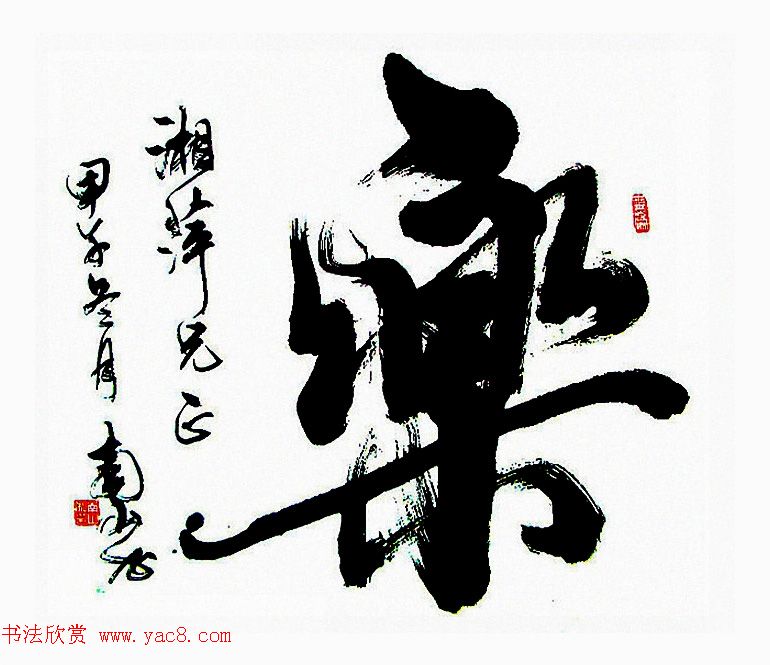 樂
湘萍兄正
甲午冬月 南山书
书法欣赏 www.yac8.com